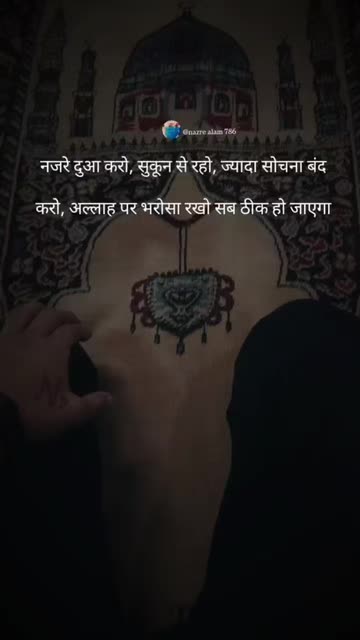 @nazre alam 786
नजरे दुआ करो, सुकून से रहो, ज्यादा सोचना बंद
करो, अल्लाह पर भरोसा रखो सब ठीक हो जाएगा